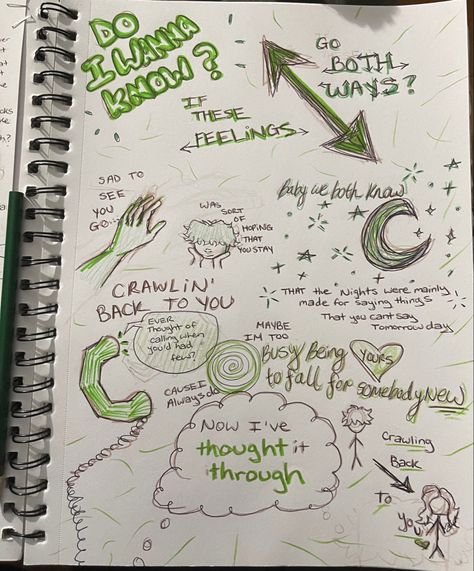 DO
I WANNA
KNOW?
IF
THESE
FEELINGS
GO
BOTH
WAYS?
SAD TO
SEE
YOU
GO...
WAS
SORT
OF
HOPING
THAT
YOU STAY
Baby we both know
THAT the "Nights were mainly
made for saying things
That you cant say
Tomorrow day
CRAWLIN'
BACK TO YOU
EVER
Thought of
calling when
you'd had
few?
CAUSE I
Always do
MAYBE
IM TOO
BUSY Being
YOURS
to fall for somebody NEW
Now I've
thought it
through
Crawling
Back
To
You